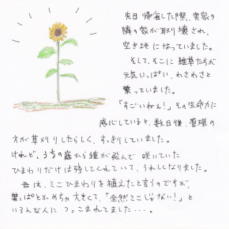 先日帰省した際、実家の
隣の家が取り壊され、
空き地になっていました。
そして、そこに雑草たちが
元気いっぱい、わさわさと
育っていました。
「すごいねぇ!」その生命力に
感心していると、数日後、管理の
方が草刈りしたらしく、すっきりしていました。
けれど、うちの庭から種が飛んで咲いていた
ひまわりだけは残してくれていて、うれしくなりました。
母は、ミニひまわりを植えたと言うのですが、
葉っぱとかめちゃ大きくて、「全然ミニじゃない!」と
いろんな人につっこまれてました…。